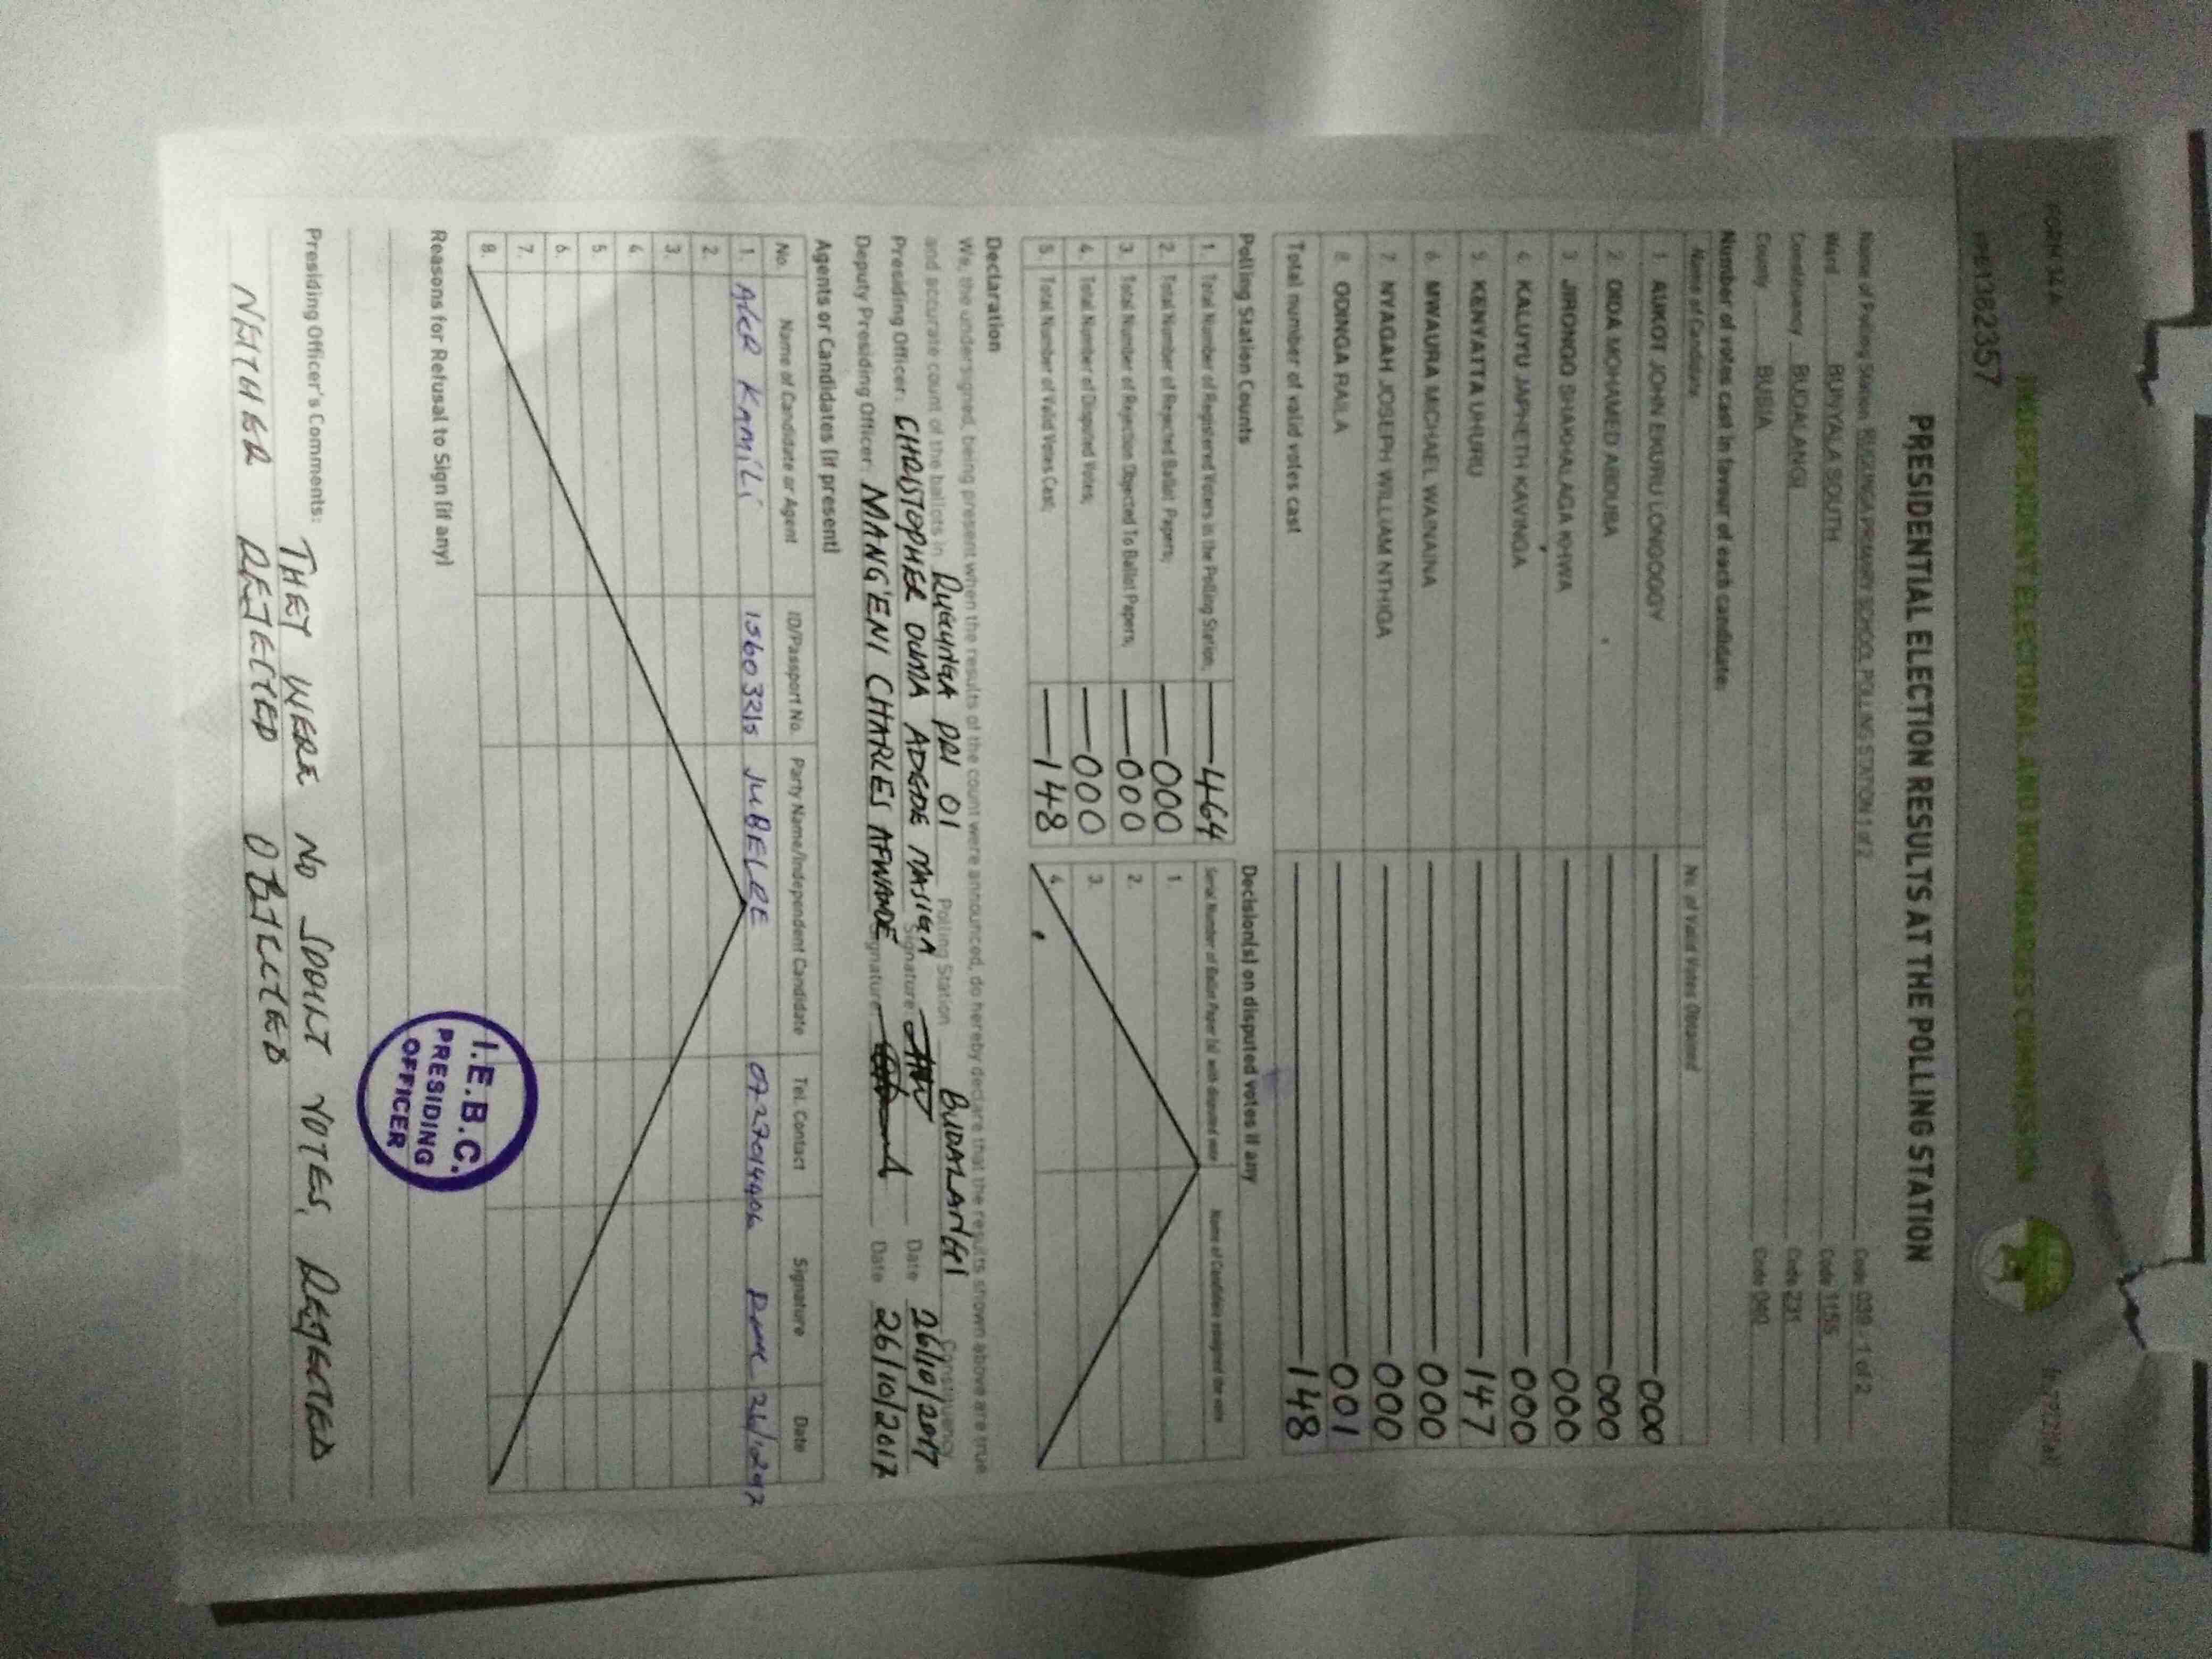 FORM 34A
INDEPENDENT ELECTORAL AND BOUNDARIES COMMISSION
PRESIDENTIAL ELECTION RESULTS AT THE POLLING STATION
Name of Polling Station PRIMARY SCHOOL POLLING STATION 1 of 2 Code 039 - 1 of 2
Ward BUNYALA SOUTH Code 1155
Constituency BUDALANGI Code 231
County BUSIA Code 040
Number of votes cast in favour of each candidate:
Name of Candidate No. of Valid Votes Obtained
1 AUKOT JOHN EKURU LONGOGGY 000
2 DIDA MOHAMED ABDUBA 000
3 JIRONGO SHAKHALAGA KHWA 000
4 KALUYU JAPHETH KAVINGA 000
5 KENYATTA UHURU 147
6 MWAURA MICHAEL WAINAINA 000
7 NYAGAH JOSEPH WILLIAM NTHIGA 000
8 ODINGA RAILA 001
Total number of valid votes cast 148
Polling Station Counts
1. Total Number of Registered Voters in the Polling Station; 464
2. Total Number of Rejected Ballot Papers; 000
3. Total Number of Rejection Objected To Ballot Papers; 000
4. Total Number of Disputed Votes; 000
5. Total Number of Valid Votes Cast; 148
Decision(s) on disputed votes if any
Serial Number of Ballot Paper (s) with disputed vote Name of Candidate assigned the vote
1.
2.
3.
4.
Declaration
We, the undersigned, being present when the results of the count were announced, do hereby declare that the results shown above are true
and accurate count of the ballots in PRI 01 Polling Station BUDALANGI Constituency
Presiding Officer: CHRISTOPHER OUMA MASIGA Signature: Date 26/10/2017
Deputy Presiding Officer: MANG'ENI CHARLES AFWANDE Signature: Date 26/10/2017
Agents or Candidates (if present)
No. Name of Candidate or Agent ID/Passport No. Party Name/Independent Candidate Tel. Contact Signature Date
1. JUBELEE 26/10/2017
2.
3.
4
5
6.
7.
8.
Reasons for Refusal to Sign (if any)
I.E.B.C.
PRESIDING
OFFICER
Presiding Officer's Comments: THEY WERE NO VOTES, REJECTED
NEITHER REJECTED OBJECTED